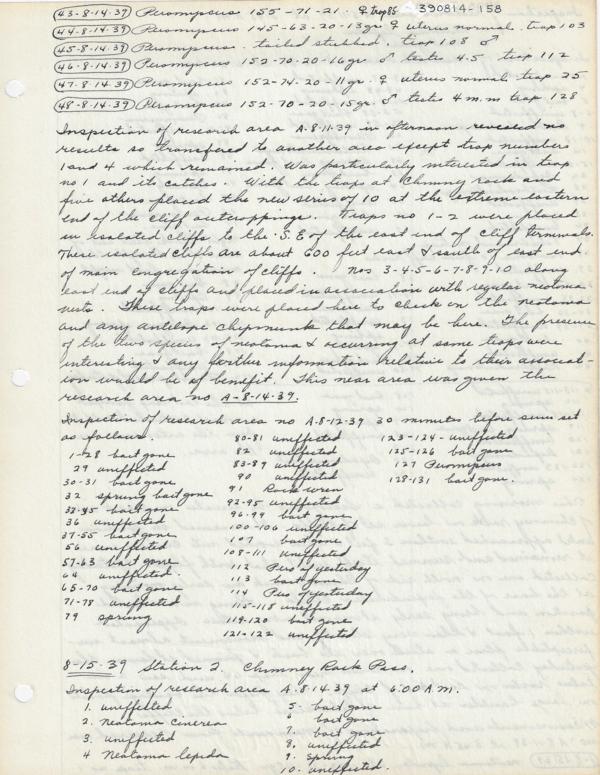 43-8-14-39 Peromyscus 155-71-21. ♀ trap 86 390814-158
44-8-14-39 Peromyscus 145-63-20-13gr ♀ uterus normal. trap 103
45-8-14-39 Peromyscus. tailed stubbed. trap 108 ♂
46-8-14-39 Peromyscus 152-70-20-16gr ♂ testes 4.5 trap 112
47-8-14-39 Peromyscus 152-74-20-11gr. ♀ uterus normal trap 25
48-8-14-39 Peromyscus 152-70-20-15gr. ♂ testes 4 m.m trap 128
Inspection of research area A-8-11-39 in afternoon revealed no
results so transfered to another area except trap numbers
1 and 4 which remained. Was particularly interested in trap
no 1 and its catches. With the traps at Chimney rock and
five others placed the new series of 10 at the extreme eastern
end of the cliff outcroppings. Traps no 1-2 were placed
in isolated cliffs to the S.E of the east end of cliff terminals.
These isolated cliffs are about 600 feet east & south of east end
of main congregation of cliffs. Nos 3-4-5-6-7-8-9-10 along
east end of cliffs and placed in association with regular neotoma
nests. These traps were placed here to check on the neotoma
and any antelope chipmunk that may be here. The presence
of the two species of neotoma & occurring at same traps were
interesting & any further information relative to their associat-
ion would be of benefit. This new area was given the
research area no A-8-14-39.
Inspection of research area no A-8-12-39 30 minutes before sun set
as follows.
1-28 bait gone
29 uneffected
30-31 bait gone
32 sprung bait gone
33-35 bait gone
36 uneffected
37-55 bait gone
56 uneffected
57-63 bait gone
64 uneffected.
65-70 bait gone
71-78 uneffected
79 sprung
80-81 uneffected
82 uneffected
83-89 uneffected
90 uneffected
91 Rock wren
92-95 uneffected
96-99 bait gone
100-106 uneffected
107 bait gone
108-111 uneffected
112 Pero of yesterday
113 bait gone
114 Pero of yesterday
115-118 uneffected
119-120 bait gone
121-122 uneffected
123-124- uneffected
125-126 bait gone
127 Peromyscus
128-131 bait gone.
8-15-39 Station 2. Chimney Rock Pass.
Inspection of research area A-8-14-39 at 6:00 A.M.
1. uneffected
2. Neotoma cinerea
3. uneffected
4 Neotoma lepida
5- bait gone
6 bait gone
7. bait gone
8. uneffected
9. sprung
10. uneffected.